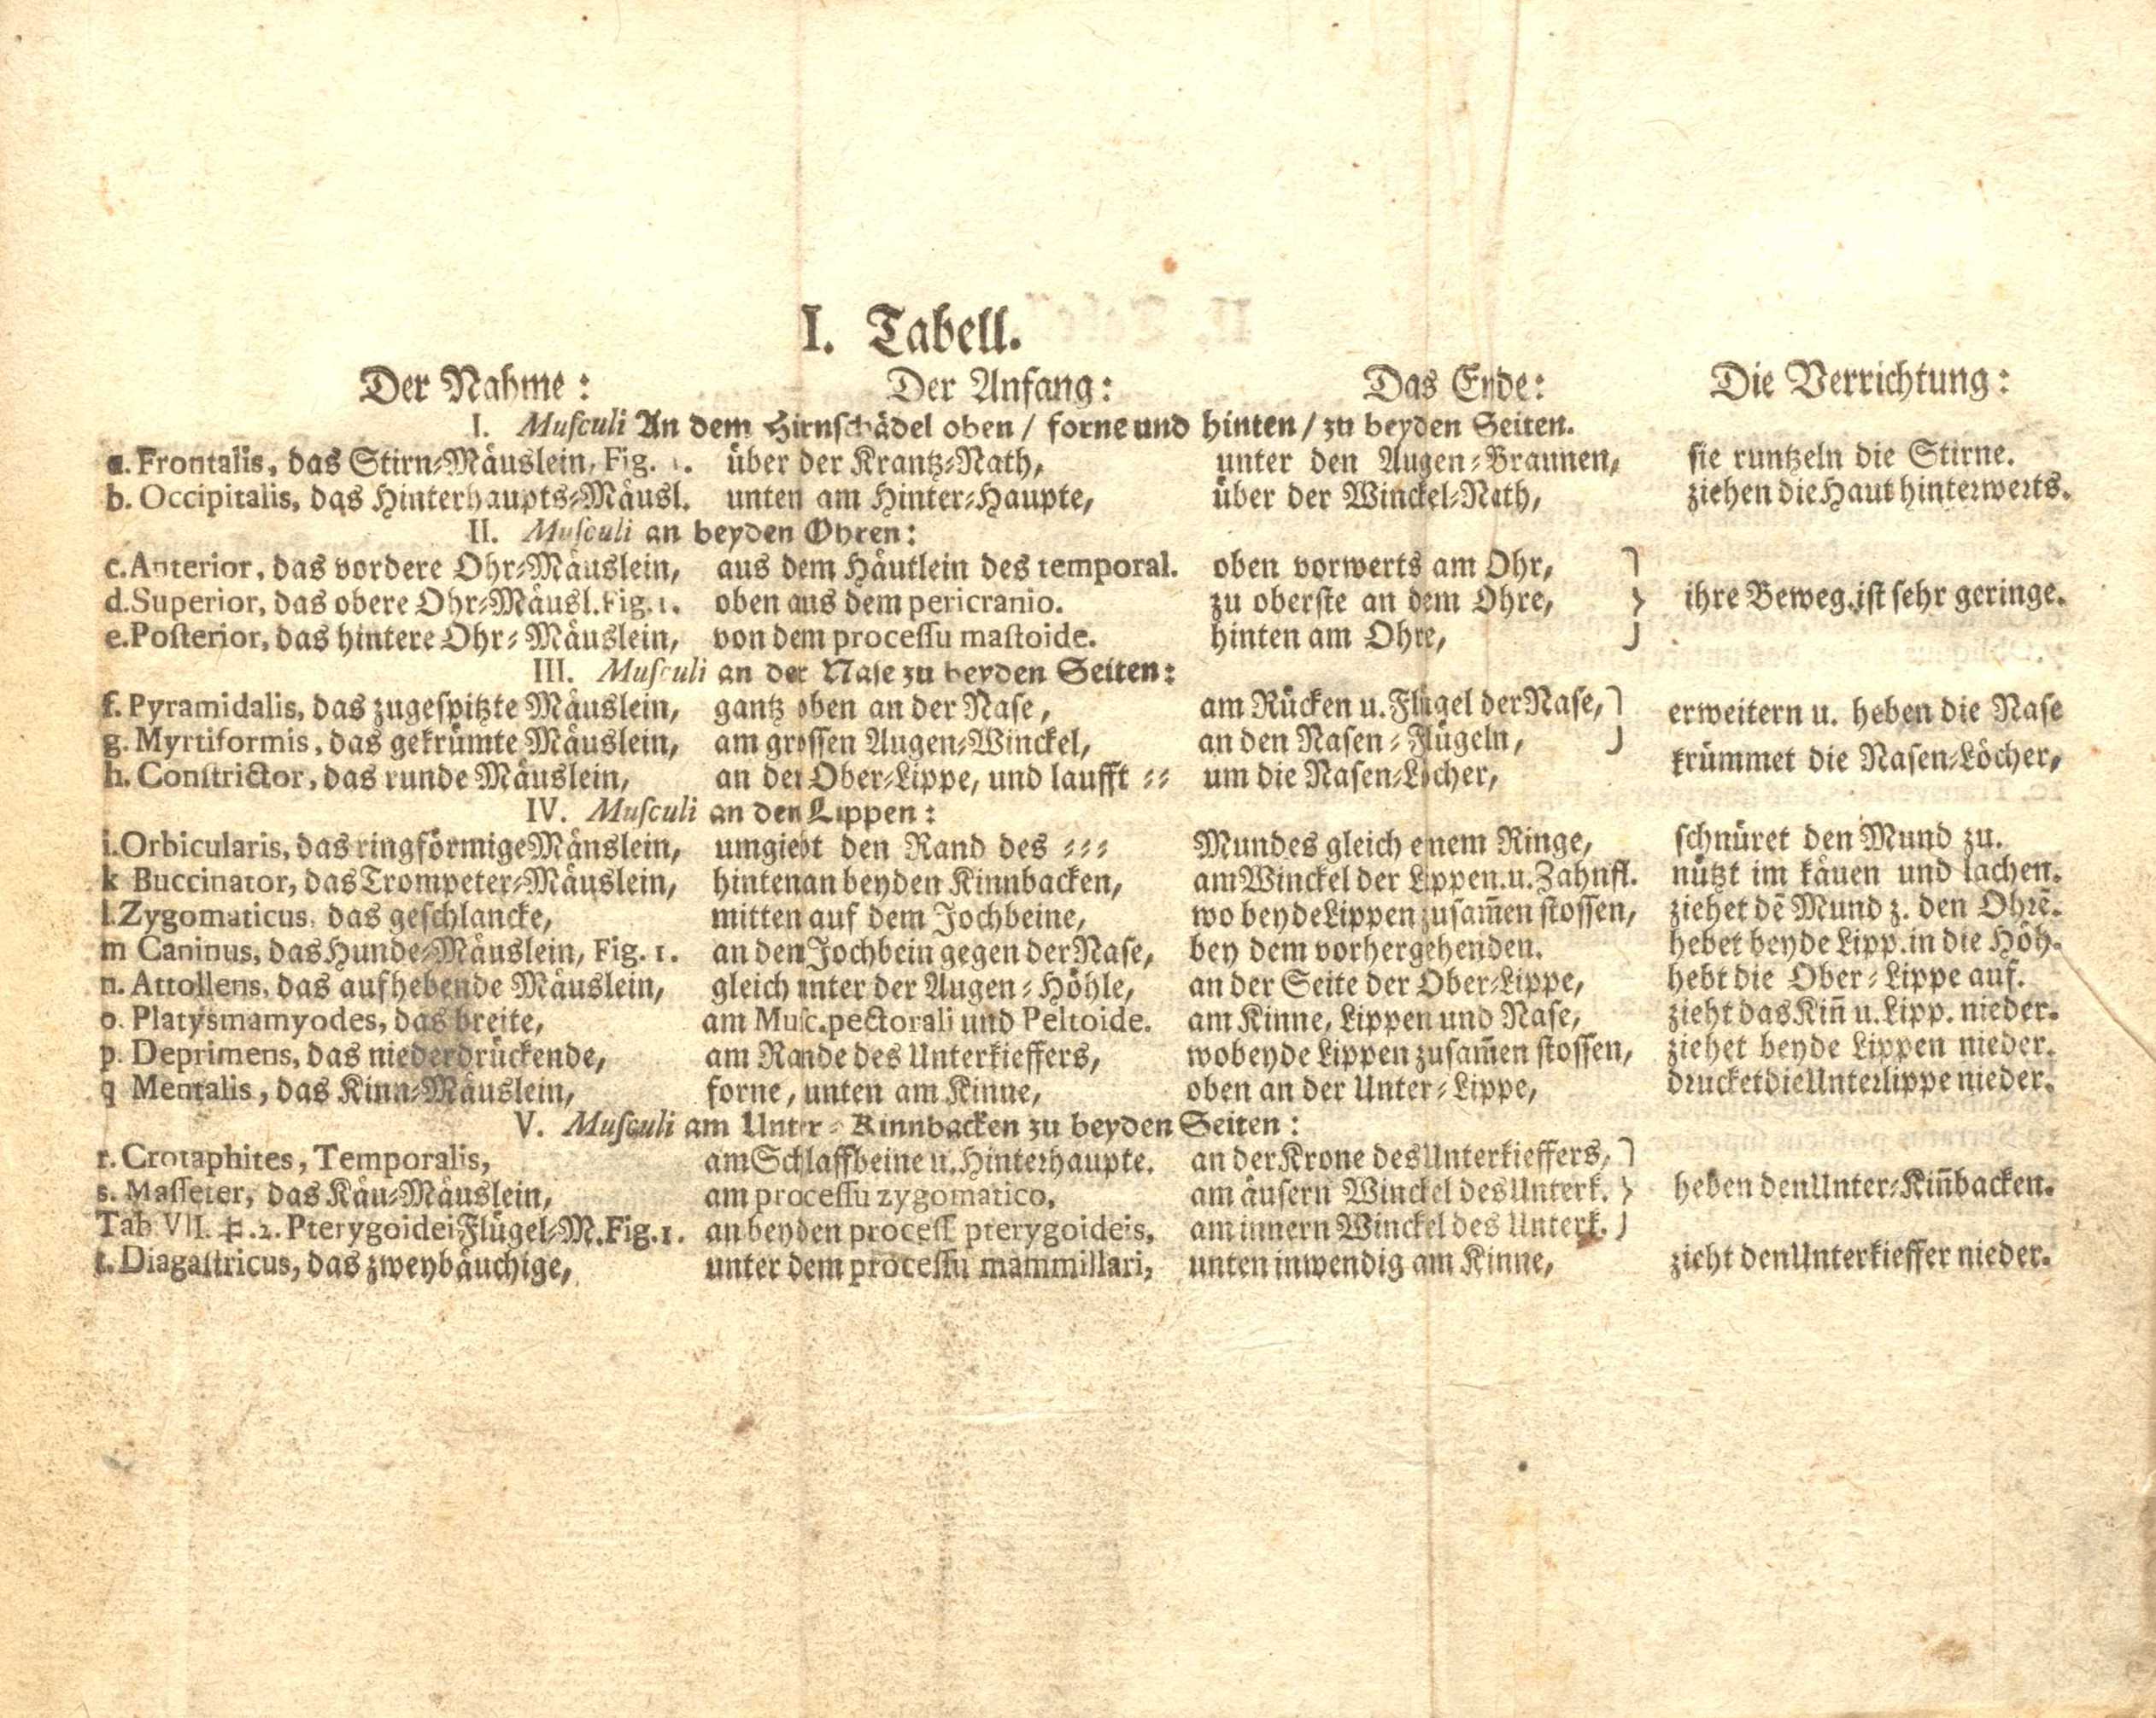 I. Tabell.
Der Nahme: Der Anfang: Das Ende: Die Verrichtung:
I. Musculi An dem Hirnschädel oben / forne und hinten / zu beyden Seiten.
a. Frontalis, das Stirn-Mäuslein, Fig. 1. über der Krantz-Nath, unter den Augen-Braunen, sie runtzeln die Stirne.
b. Occipitalis, das Hinterhaupts-Mäusl. unten am Hinter-Haupte, über der Winckel-Nath, ziehen die Haut hinterwerts.
II. Musculi an beyden Ohren:
c. Anterior, das vordere Ohr-Mäuslein, aus dem Häutlein des temporal. oben vorwerts am Ohr,
d. Superior, das obere Ohr-Mäusl. Fig. 1. oben aus dem pericranio. zu oberste an dem Ohre, } ihre Beweg. ist sehr geringe.
e. Posterior, das hintere Ohr-Mäuslein, von dem processu mastoide. hinten am Ohre,
III. Musculi an der Nase zu beyden Seiten:
f. Pyramidalis, das zugespitzte Mäuslein, gantz oben an der Nase, am Rücken u. Flügel der Nase, } erweitern u. heben die Nase
g. Myrtiformis, das gekrümte Mäuslein, am grossen Augen-Winckel, an den Nasen-Flügeln,
h. Constrictor, das runde Mäuslein, an der Ober-Lippe, und laufft -- um die Nasen-Löcher, krümmet die Nasen-Löcher,
IV. Musculi an den Lippen:
i. Orbicularis, das ringförmige Mäuslein, umgiebt den Rand des --- Mundes gleich einem Ringe, schnüret den Mund zu.
k Buccinator, das Trompeter-Mäuslein, hinten an beyden Kinnbacken, am Winckel der Lippen. u. Zahnfl. nützt im käuen und lachen.
l. Zygomaticus, das geschlancke, mitten auf dem Jochbeine, wo beyde Lippen zusam̄en stossen, ziehet dē Mund z. den Ohrē.
m Caninus, das Hunde-Mäuslein, Fig. 1. an den Jochbein gegen der Nase, bey dem vorhergehenden. hebet beyde Lipp. in die Höh.
n. Attollens, das aufhebende Mäuslein, gleich unter der Augen-Höhle, an der Seite der Ober-Lippe, hebt die Ober-Lippe auf.
o. Platysmamyodes, das breite, am Musc. pectorali und Peltoide. am Kinne, Lippen und Nase, zieht das Kin̄ u. Lipp. nieder.
p. Deprimens, das niederdrückende, am Rande des Unterkieffers, wo beyde Lippen zusam̄en stossen, ziehet beyde Lippen nieder.
q Mentalis, das Kinn-Mäuslein, forne, unten am Kinne, oben an der Unter-Lippe, drucket die Unterlippe nieder.
V. Musculi am Unter-Kinnbacken zu beyden Seiten:
r. Crotaphites, Temporalis, am Schlaffbeine u. Hinterhaupte. an der Krone des Unterkieffers,
s. Masseter, das Käu-Mäuslein, am processu zygomatico, am äusern Winckel des Unterk. } heben den Unter-Kin̄backen.
Tab VII. #.2. Pterygoidei Flügel-M. Fig. 1. an beyden process pterygoideis, am innern Winckel des Unterk.
t. Diagastricus, das zweybäuchige, unter dem processu mammillari, unten inwendig am Kinne, zieht den Unterkieffer nieder.